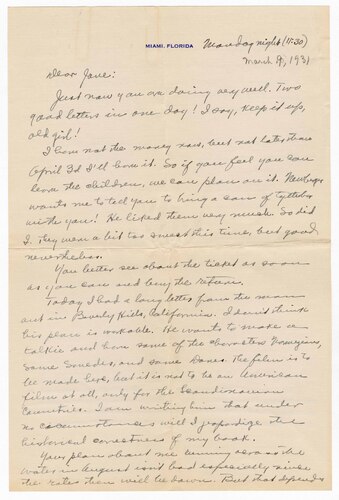 MIAMI, FLORIDA
Monday night (11:30)
March 9, 1931
Dear Jane:
Just now you are doing very well. Two
good letters in one day! I say, keep it up,
old girl!
I have not the money now, but not later than
April 3d I'll have it. So if you feel you can
leave the children, we can plan on it.
wants me to tell you to bring a can of tyttebær
with you! He liked them very much. So did
I. They were a bit too sweet this time, but good,
nevertheless.
You better see about the ticket as soon
as you can and buy the return.
Today I had a long letter from the man
out in Beverly Hills, California. I don't think
his plan is workable. He wants to make a
talkie and have some of the characters Norwegians,
some Swedes, and some Danes. The film is to
be made here, but it is not to be an American
film at all, only for the Scandinavian
countries. I am writing him that under
no circumstances will I jeopardize the
historical correctness of my book.
Your plan about me coming across the
water in August isn't bad especially since
the rates then will be down. But that depends